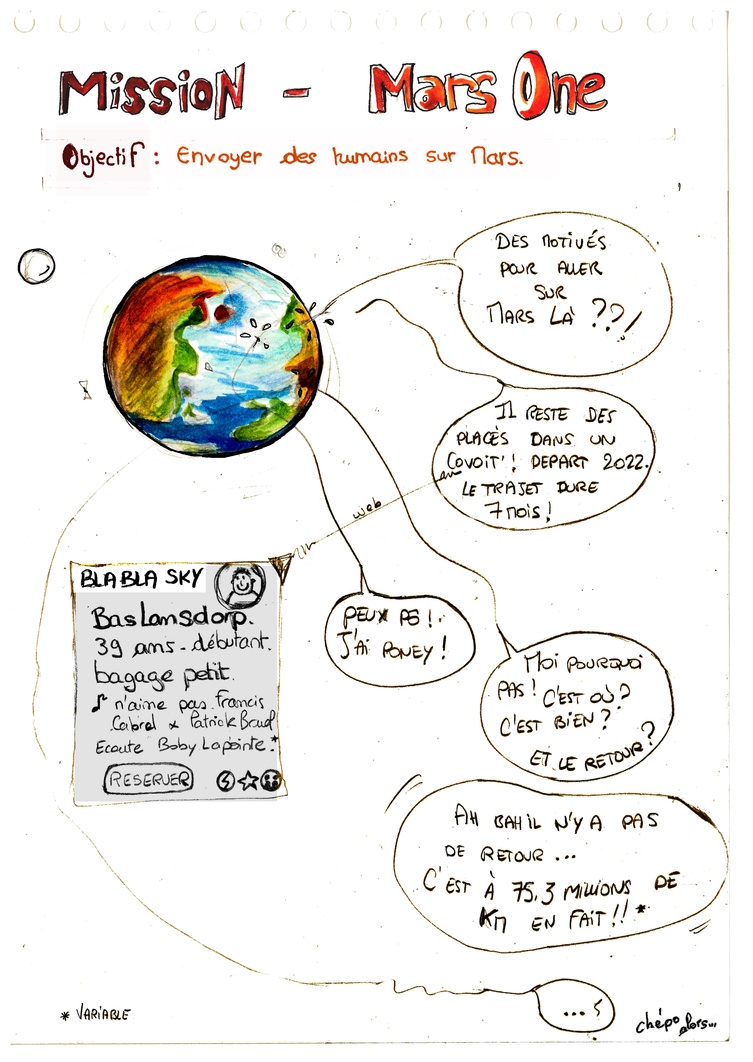 MissioN - Mars One
Objectif : Envoyer des humains sur Mars.
DES MOTIVÉS
POUR ALLER
SUR
MARS LÀ ??!
IL RESTE DES
PLACES DANS UN
COVOIT' ! DEPART 2022.
LE TRAJET DURE
7 MOIS !
web
BLABLA SKY
Bas Lansdorp.
39 ans - débutant.
bagage petit.
n'aime pas Francis
Cabrel x Patrick Bruel
Ecoute Boby Lapointe.*
RESERVER
PEUX PAS !
J'AI PONEY !
MOI POURQUOI
PAS ! C'EST OÙ ?
C'EST BIEN ?
ET LE RETOUR ?
AH BAH IL N'Y A PAS
DE RETOUR ...
C'EST À 75,3 MILLIONS DE
KM EN FAIT !! *
...
* VARIABLE
chépo alors...